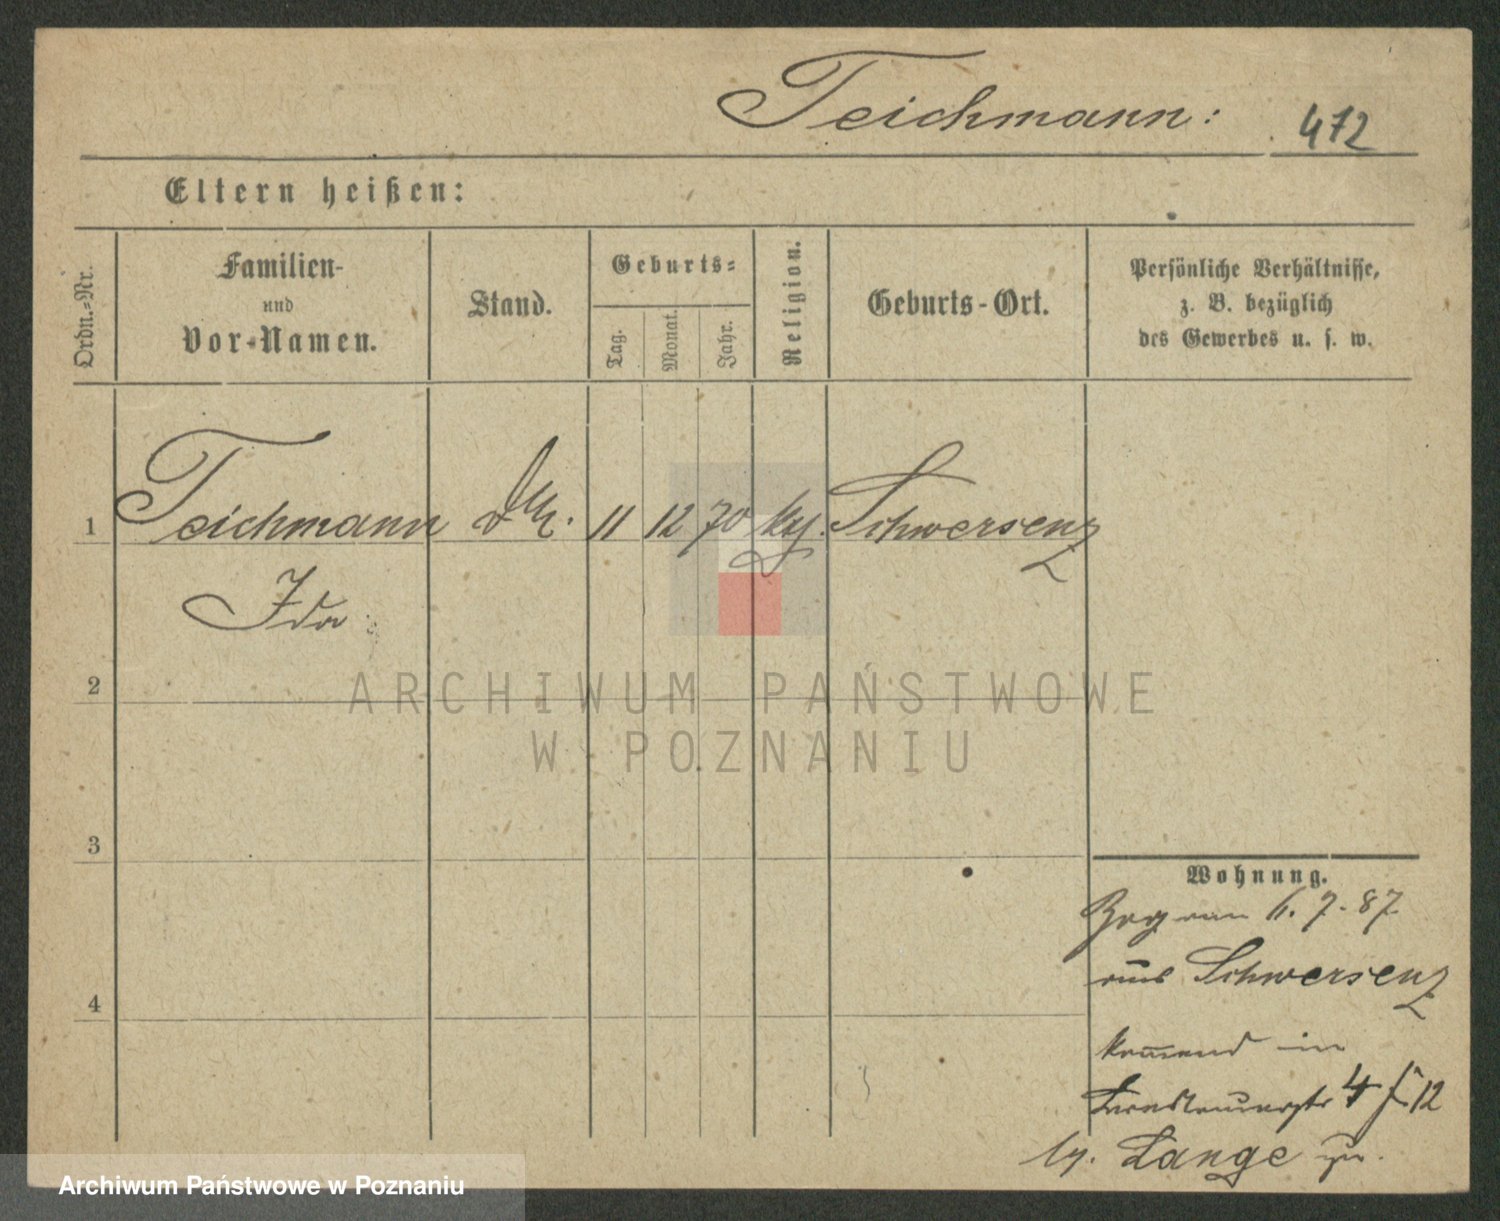 Teichmann: 472
Eltern heißen:
Ordn.-Nr.
Familien-
und
Vor-Namen.
Stand.
Geburts-
Tag.
Monat.
Jahr.
Religion.
Geburts-Ort.
Persönliche Verhältnisse,
z. B. bezüglich
des Gewerbes u. s. w.
1 Teichmann 11 12 70 Schwersenz
Ida
2
3
4
Wohnung.
Zog am 6. 7. 87
aus Schwersenz
komend in
4 12
Lange zu.
ARCHIWUM PAŃSTWOWE
W POZNANIU
Archiwum Państwowe w Poznaniu